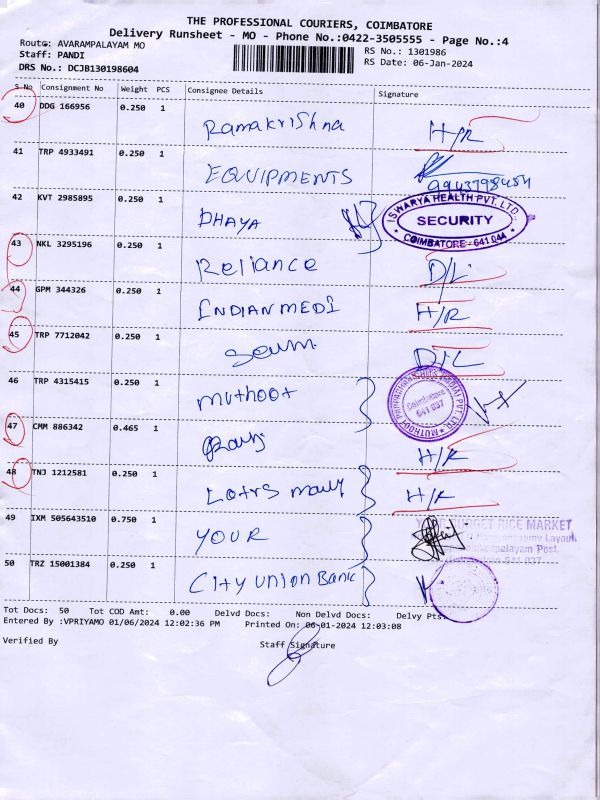 THE PROFESSIONAL COURIERS, COIMBATORE
Delivery Runsheet - MO - Phone No.:0422-3505555 - Page No.:4
Route: AVARAMPALAYAM MO
RS No.: 1301986
Staff: PANDI
RS Date: 06-Jan-2024
DRS No.: DCJB130198604
S No Consignment No Weight PCS Consignee Details Signature
40 DDG 166956 0.250 1
Ramakrishna H/R
41 TRP 4933491 0.250 1
EQUIPMENTS
42 KVT 2985895 0.250 1
DHAYA
ISWARYA HEALTH PVT. LTD.,
SECURITY
COIMBATORE - 641 044
43 NKL 3295196 0.250 1
Reliance D/L
44 GPM 344326 0.250 1
INDIANMEDI H/R
45 TRP 7712042 0.250 1
D/L
46 TRP 4315415 0.250 1
Muthoot
Coimbatore
641 037
47 CMM 886342 0.465 1
H/R
48 TNJ 1212581 0.250 1
H/R
49 IXM 505643510 0.750 1
YOUR
BUDGET RICE MARKET
Layout,
Post,
50 TRZ 15001384 0.250 1
City Union Bank
Tot Docs: 50 Tot COD Amt: 0.00 Delvd Docs: Non Delvd Docs: Delvy Pts:
Entered By :VPRIYAMO 01/06/2024 12:02:36 PM Printed On: 06-01-2024 12:03:08
Verified By Staff Signature